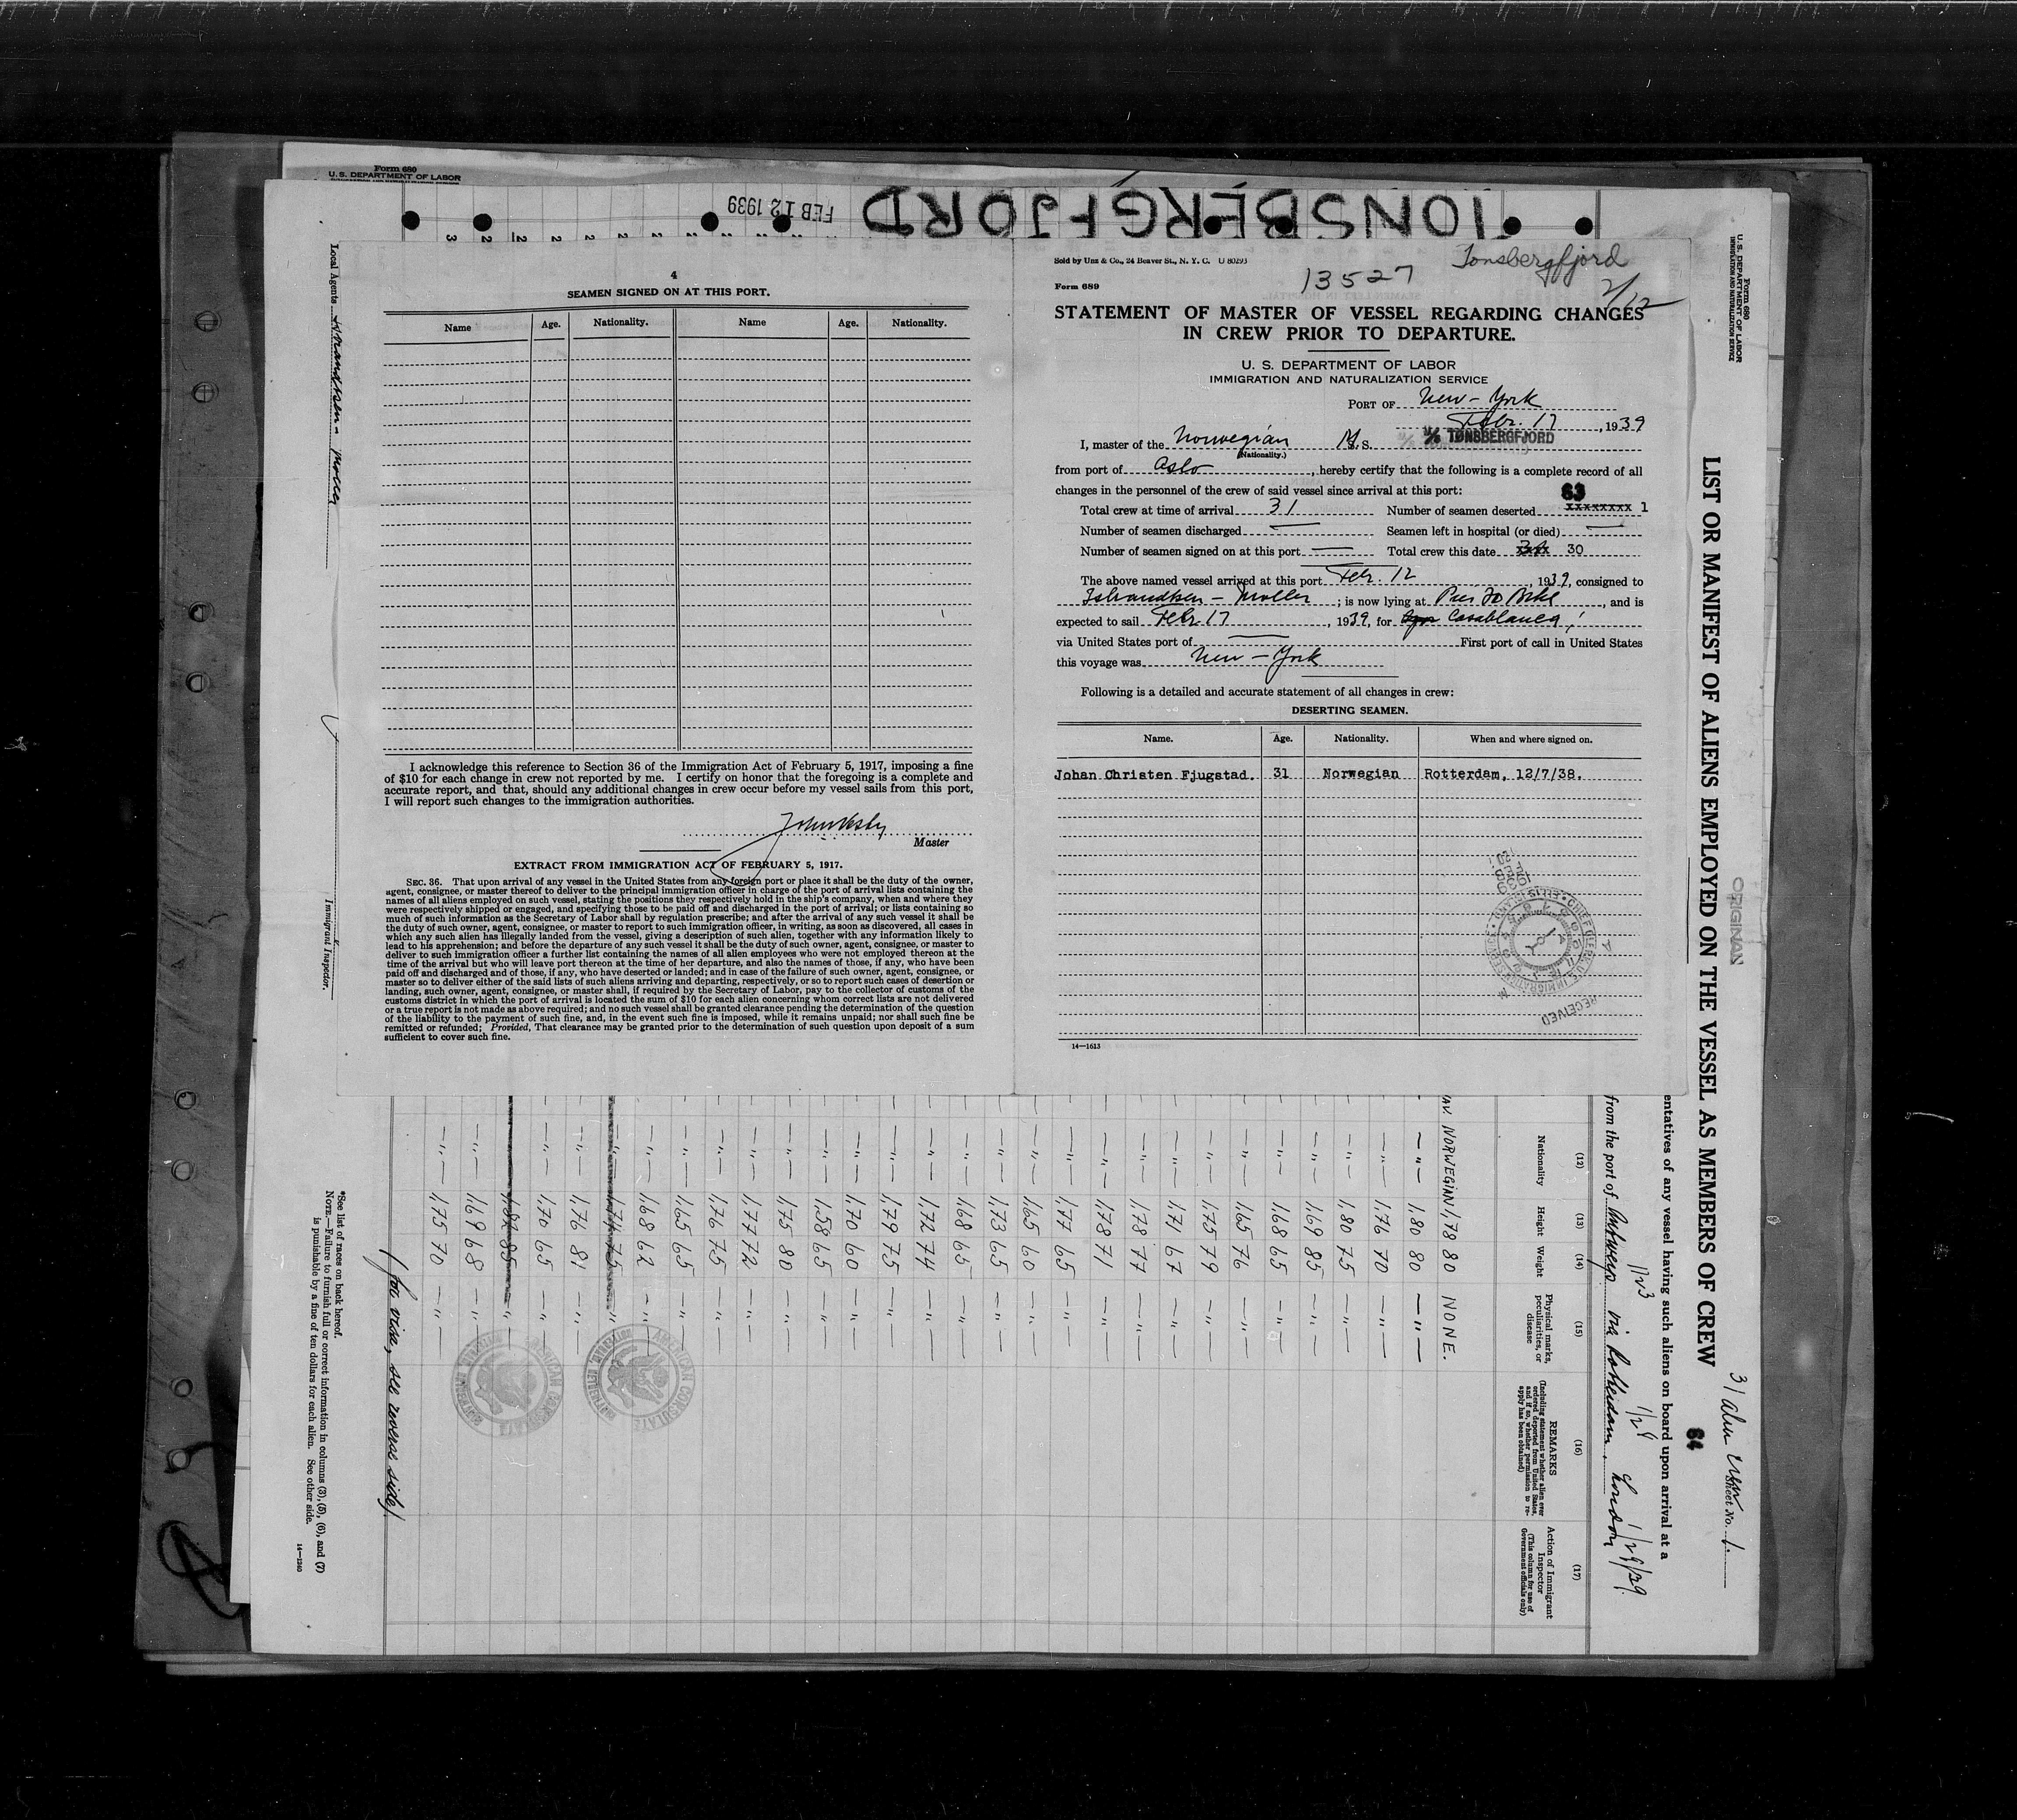 Form 680
U. S. DEPARTMENT OF LABOR
FEB 12 1939
TONSBERGFJORD
Local Agents
4
SEAMEN SIGNED ON AT THIS PORT.
Name Age. Nationality. Name Age. Nationality.
I acknowledge this reference to Section 36 of the Immigration Act of February 5, 1917, imposing a fine
of $10 for each change in crew not reported by me. I certify on honor that the foregoing is a complete and
accurate report, and that, should any additional changes in crew occur before my vessel sails from this port,
I will report such changes to the immigration authorities.
Master
EXTRACT FROM IMMIGRATION ACT OF FEBRUARY 5, 1917.
SEC. 36. That upon arrival of any vessel in the United States from any foreign port or place it shall be the duty of the owner,
agent, consignee, or master thereof to deliver to the principal immigration officer in charge of the port of arrival lists containing the
names of all aliens employed on such vessel, stating the positions they respectively hold in the ship's company, when and where they
were respectively shipped or engaged, and specifying those to be paid off and discharged in the port of arrival; or lists containing so
much of such information as the Secretary of Labor shall by regulation prescribe; and after the arrival of any such vessel it shall be
the duty of such owner, agent, consignee, or master to report to such immigration officer, in writing, as soon as discovered, all cases in
which any such alien has illegally landed from the vessel, giving a description of such alien, together with any information likely to
lead to his apprehension; and before the departure of any such vessel it shall be the duty of such owner, agent, consignee, or master to
deliver to such immigration officer a further list containing the names of all alien employees who were not employed thereon at the
time of the arrival but who will leave port thereon at the time of her departure, and also the names of those, if any, who have been
paid off and discharged and of those, if any, who have deserted or landed; and in case of the failure of such owner, agent, consignee, or
master so to deliver either of the said lists of such aliens arriving and departing, respectively, or so to report such cases of desertion or
landing, such owner, agent, consignee, or master shall, if required by the Secretary of Labor, pay to the collector of customs of the
customs district in which the port of arrival is located the sum of $10 for each alien concerning whom correct lists are not delivered
or a true report is not made as above required; and no such vessel shall be granted clearance pending the determination of the question
of the liability to the payment of such fine, and, in the event such fine is imposed, while it remains unpaid; nor shall such fine be
remitted or refunded; Provided, That clearance may be granted prior to the determination of such question upon deposit of a sum
sufficient to cover such fine.
Immigrant Inspector.
Sold by Unz & Co., 24 Beaver St., N. Y. C. U 80293
13527
Tonsbergfjord
2/12
Form 689
STATEMENT OF MASTER OF VESSEL REGARDING CHANGES
IN CREW PRIOR TO DEPARTURE.
U. S. DEPARTMENT OF LABOR
IMMIGRATION AND NATURALIZATION SERVICE
PORT OF New-York
Febr. 17, 1939
I, master of the Norwegian M. S. M/S TØNSBERGFJORD
(Nationality.)
from port of Oslo, hereby certify that the following is a complete record of all
changes in the personnel of the crew of said vessel since arrival at this port:
63
Total crew at time of arrival 31 Number of seamen deserted xxxxxxxx 1
Number of seamen discharged — Seamen left in hospital (or died) —
Number of seamen signed on at this port — Total crew this date 30
The above named vessel arrived at this port Febr. 12, 1939, consigned to
; is now lying at Pier 30, and is
expected to sail Febr 17, 1939, for Casablanca
via United States port of — First port of call in United States
this voyage was New-York
Following is a detailed and accurate statement of all changes in crew:
DESERTING SEAMEN.
Name. Age. Nationality. When and where signed on.
Johan Christen Fjugstad. 31 Norwegian Rotterdam, 12/7/38.
RECEIVED
CHIEF CLERK U.S. IMMIGRATION SERVICE • ELLIS ISLAND
14—1613
Form 680
U. S. DEPARTMENT OF LABOR
IMMIGRATION AND NATURALIZATION SERVICE
ORIGINAL
LIST OR MANIFEST OF ALIENS EMPLOYED ON THE VESSEL AS MEMBERS OF CREW
64
31 alien crew
Sheet No. 1
entatives of any vessel having such aliens on board upon arrival at a
from the port of Antwerp via Rotterdam, London
1/23 1/28 1/29/39
(12) (13) (14) (15) (16) (17)
Nationality Height Weight Physical marks, peculiarities, or disease
REMARKS
(Including statement whether alien ever ordered deported from United States, and if so, whether permission to reapply has been obtained)
Action of Immigrant Inspector
(This column for use of Government officials only)
NORWEGIAN 1,78 80 NONE.
—"— 1,80 80 —"—
—"— 1,76 70 —"—
—"— 1,80 75 —"—
—"— 1,69 85 —"—
—"— 1,68 65 —"—
—"— 1,65 76 —"—
—"— 1,75 79 —"—
—"— 1,71 67 —"—
—"— 1,78 77 —"—
—"— 1,78 71 —"—
—"— 1,77 65 —"—
—"— 1,65 60 —"—
—"— 1,73 65 —"—
—"— 1,68 65 —"—
—"— 1,72 74 —"—
—"— 1,79 75 —"—
—"— 1,70 60 —"—
—"— 1,58 65 —"—
—"— 1,75 80 —"—
—"— 1,77 72 —"—
—"— 1,76 75 —"—
—"— 1,65 65 —"—
—"— 1,68 62 —"—
—"— 1,74 75 —"—
—"— 1,76 81 —"—
—"— 1,70 65 —"—
—"— 1,82 85 —"—
—"— 1,69 68 —"—
—"— 1,75 70 —"—
AMERICAN CONSULATE
(for visa, see reverse side)
*See list of races on back hereof.
NOTE.—Failure to furnish full or correct information in columns (3), (5), (6), and (7)
is punishable by a fine of ten dollars for each alien. See other side.
14—1240